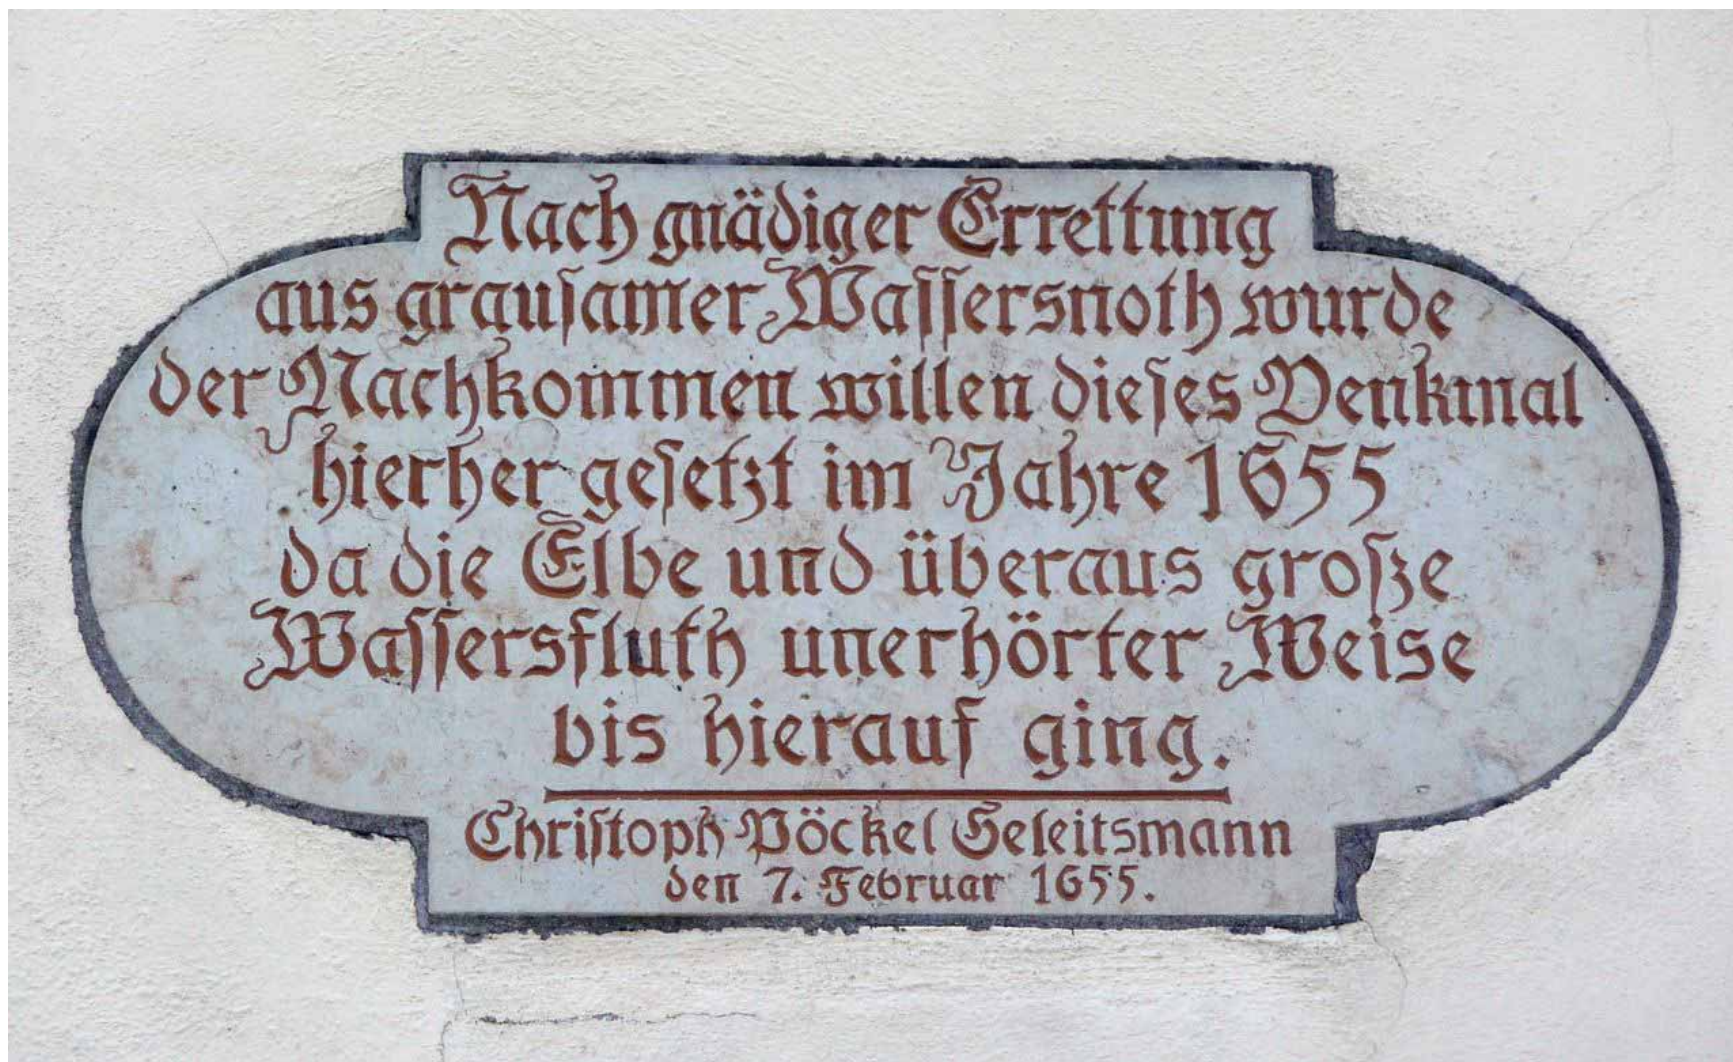 Nach gnädiger Errettung
aus grauſamer Waſſersnoth wurde
der Nachkommen willen dieſes Denkmal
hierher geſetzt im Jahre 1655
da die Elbe und überaus große
Waſſersfluth unerhörter Weise
bis hierauf ging.
Chriſtoph Pöckel Geleitsmann
den 7. Februar 1655.